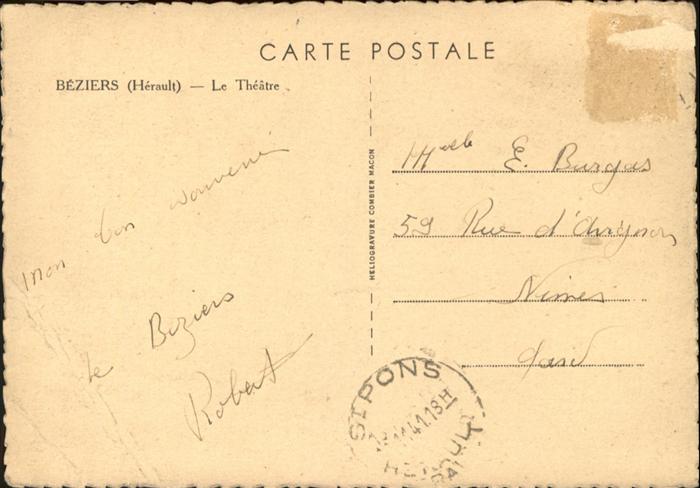 CARTE POSTALE
BÉZIERS (Hérault) — Le Théâtre
mon bon souvenir
de Beziers
Robert
HELIOGRAVURE COMBIER MACON
Melle E. Burgas
59 Rue d'Avignon
Nimes
Gard
ST PONS
41.18H
HERAULT